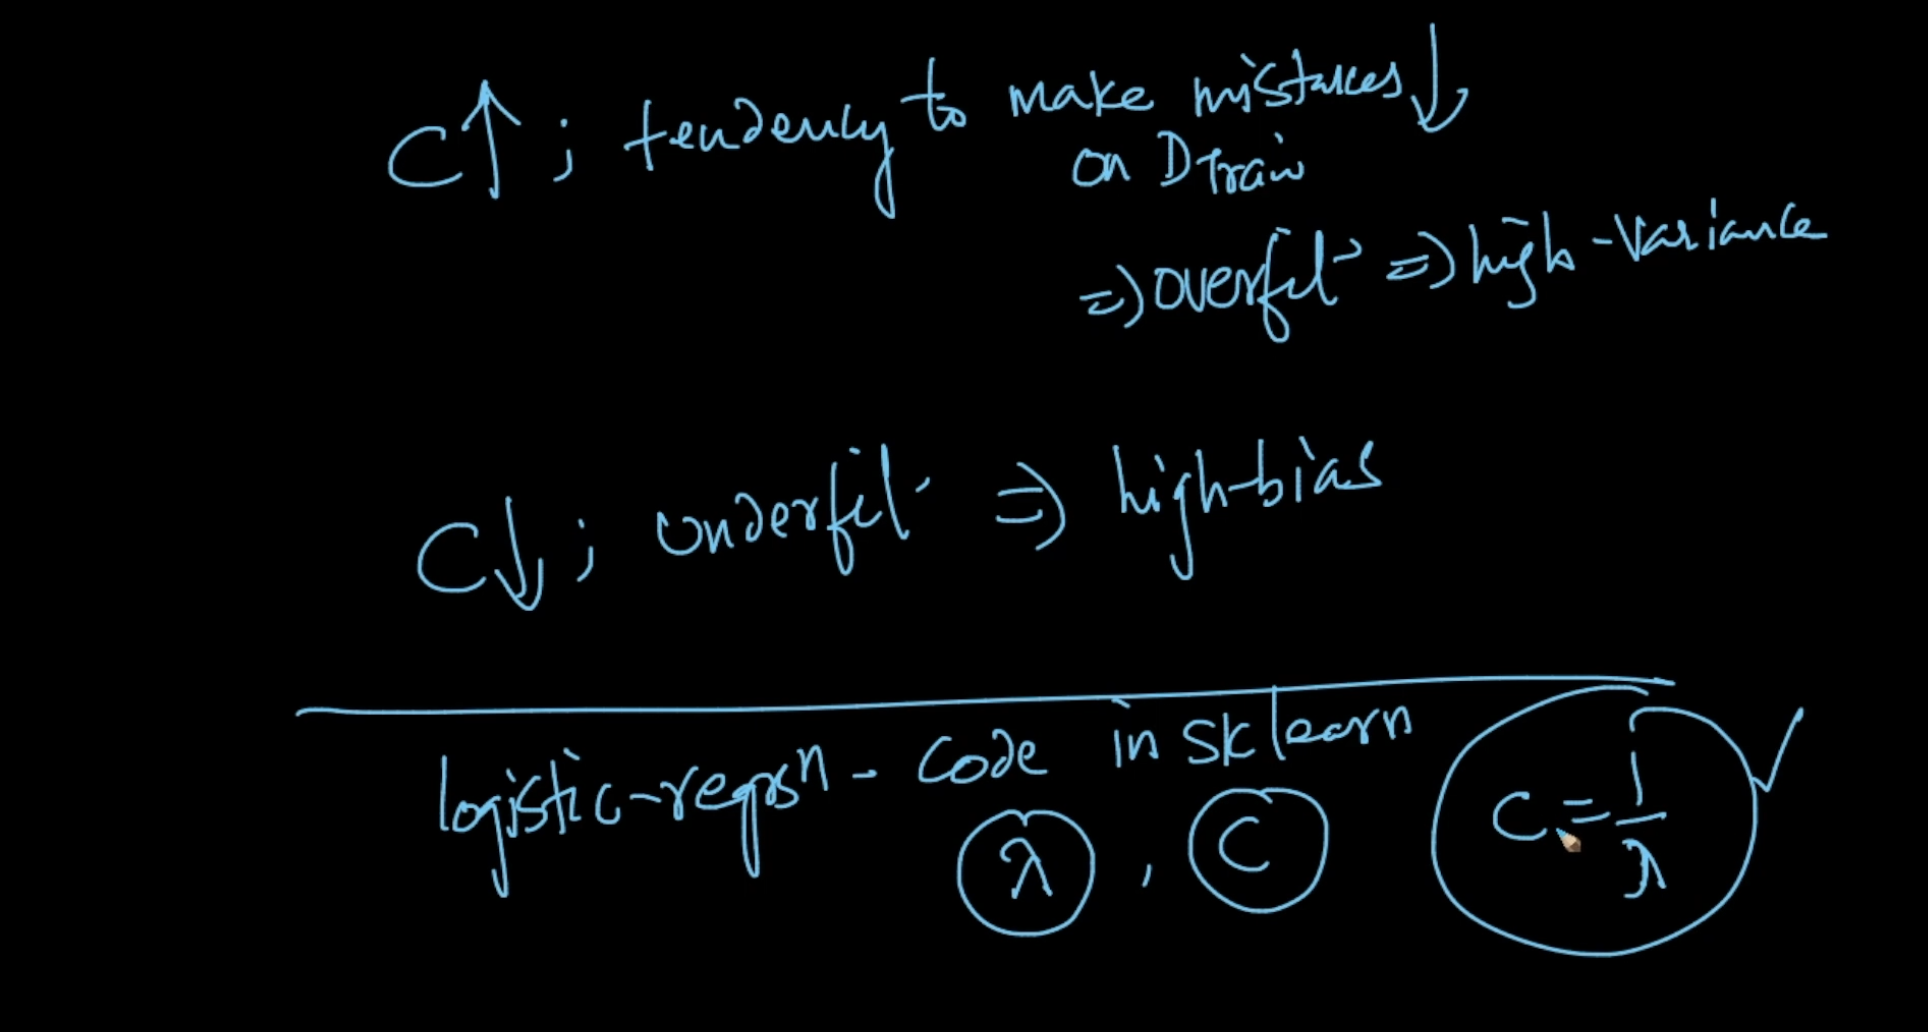 C↑ ; tendency to make mistakes ↓
on DTrain
⇒ overfit ⇒ high-variance
C↓ ; underfit ⇒ high-bias
logistic-regrsn - code in sklearn
λ , C
C = 1/λ ✓